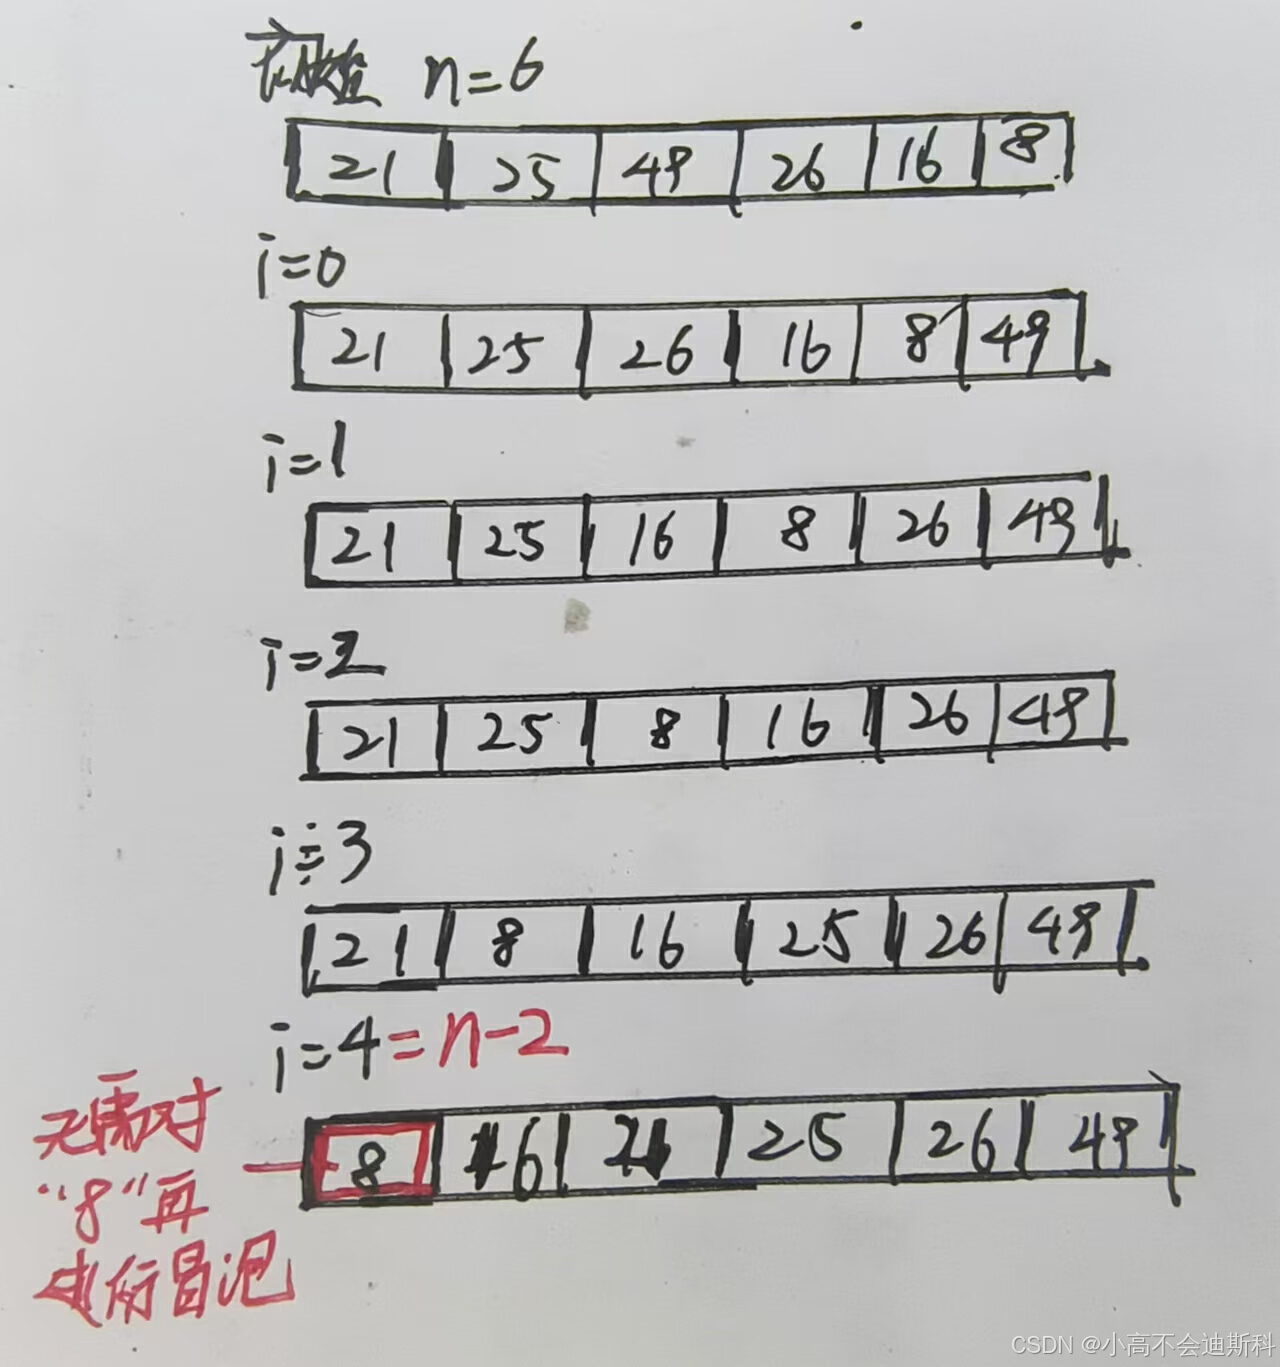 n=6
21 25 49 26 16 8
i=0
21 25 26 16 8 49
i=1
21 25 16 8 26 49
i=2
21 25 8 16 26 49
i=3
21 8 16 25 26 49
i=4=n-2
8 16 21 25 26 49
无需对
"8"再
进行冒泡
CSDN @小高不会迪斯科